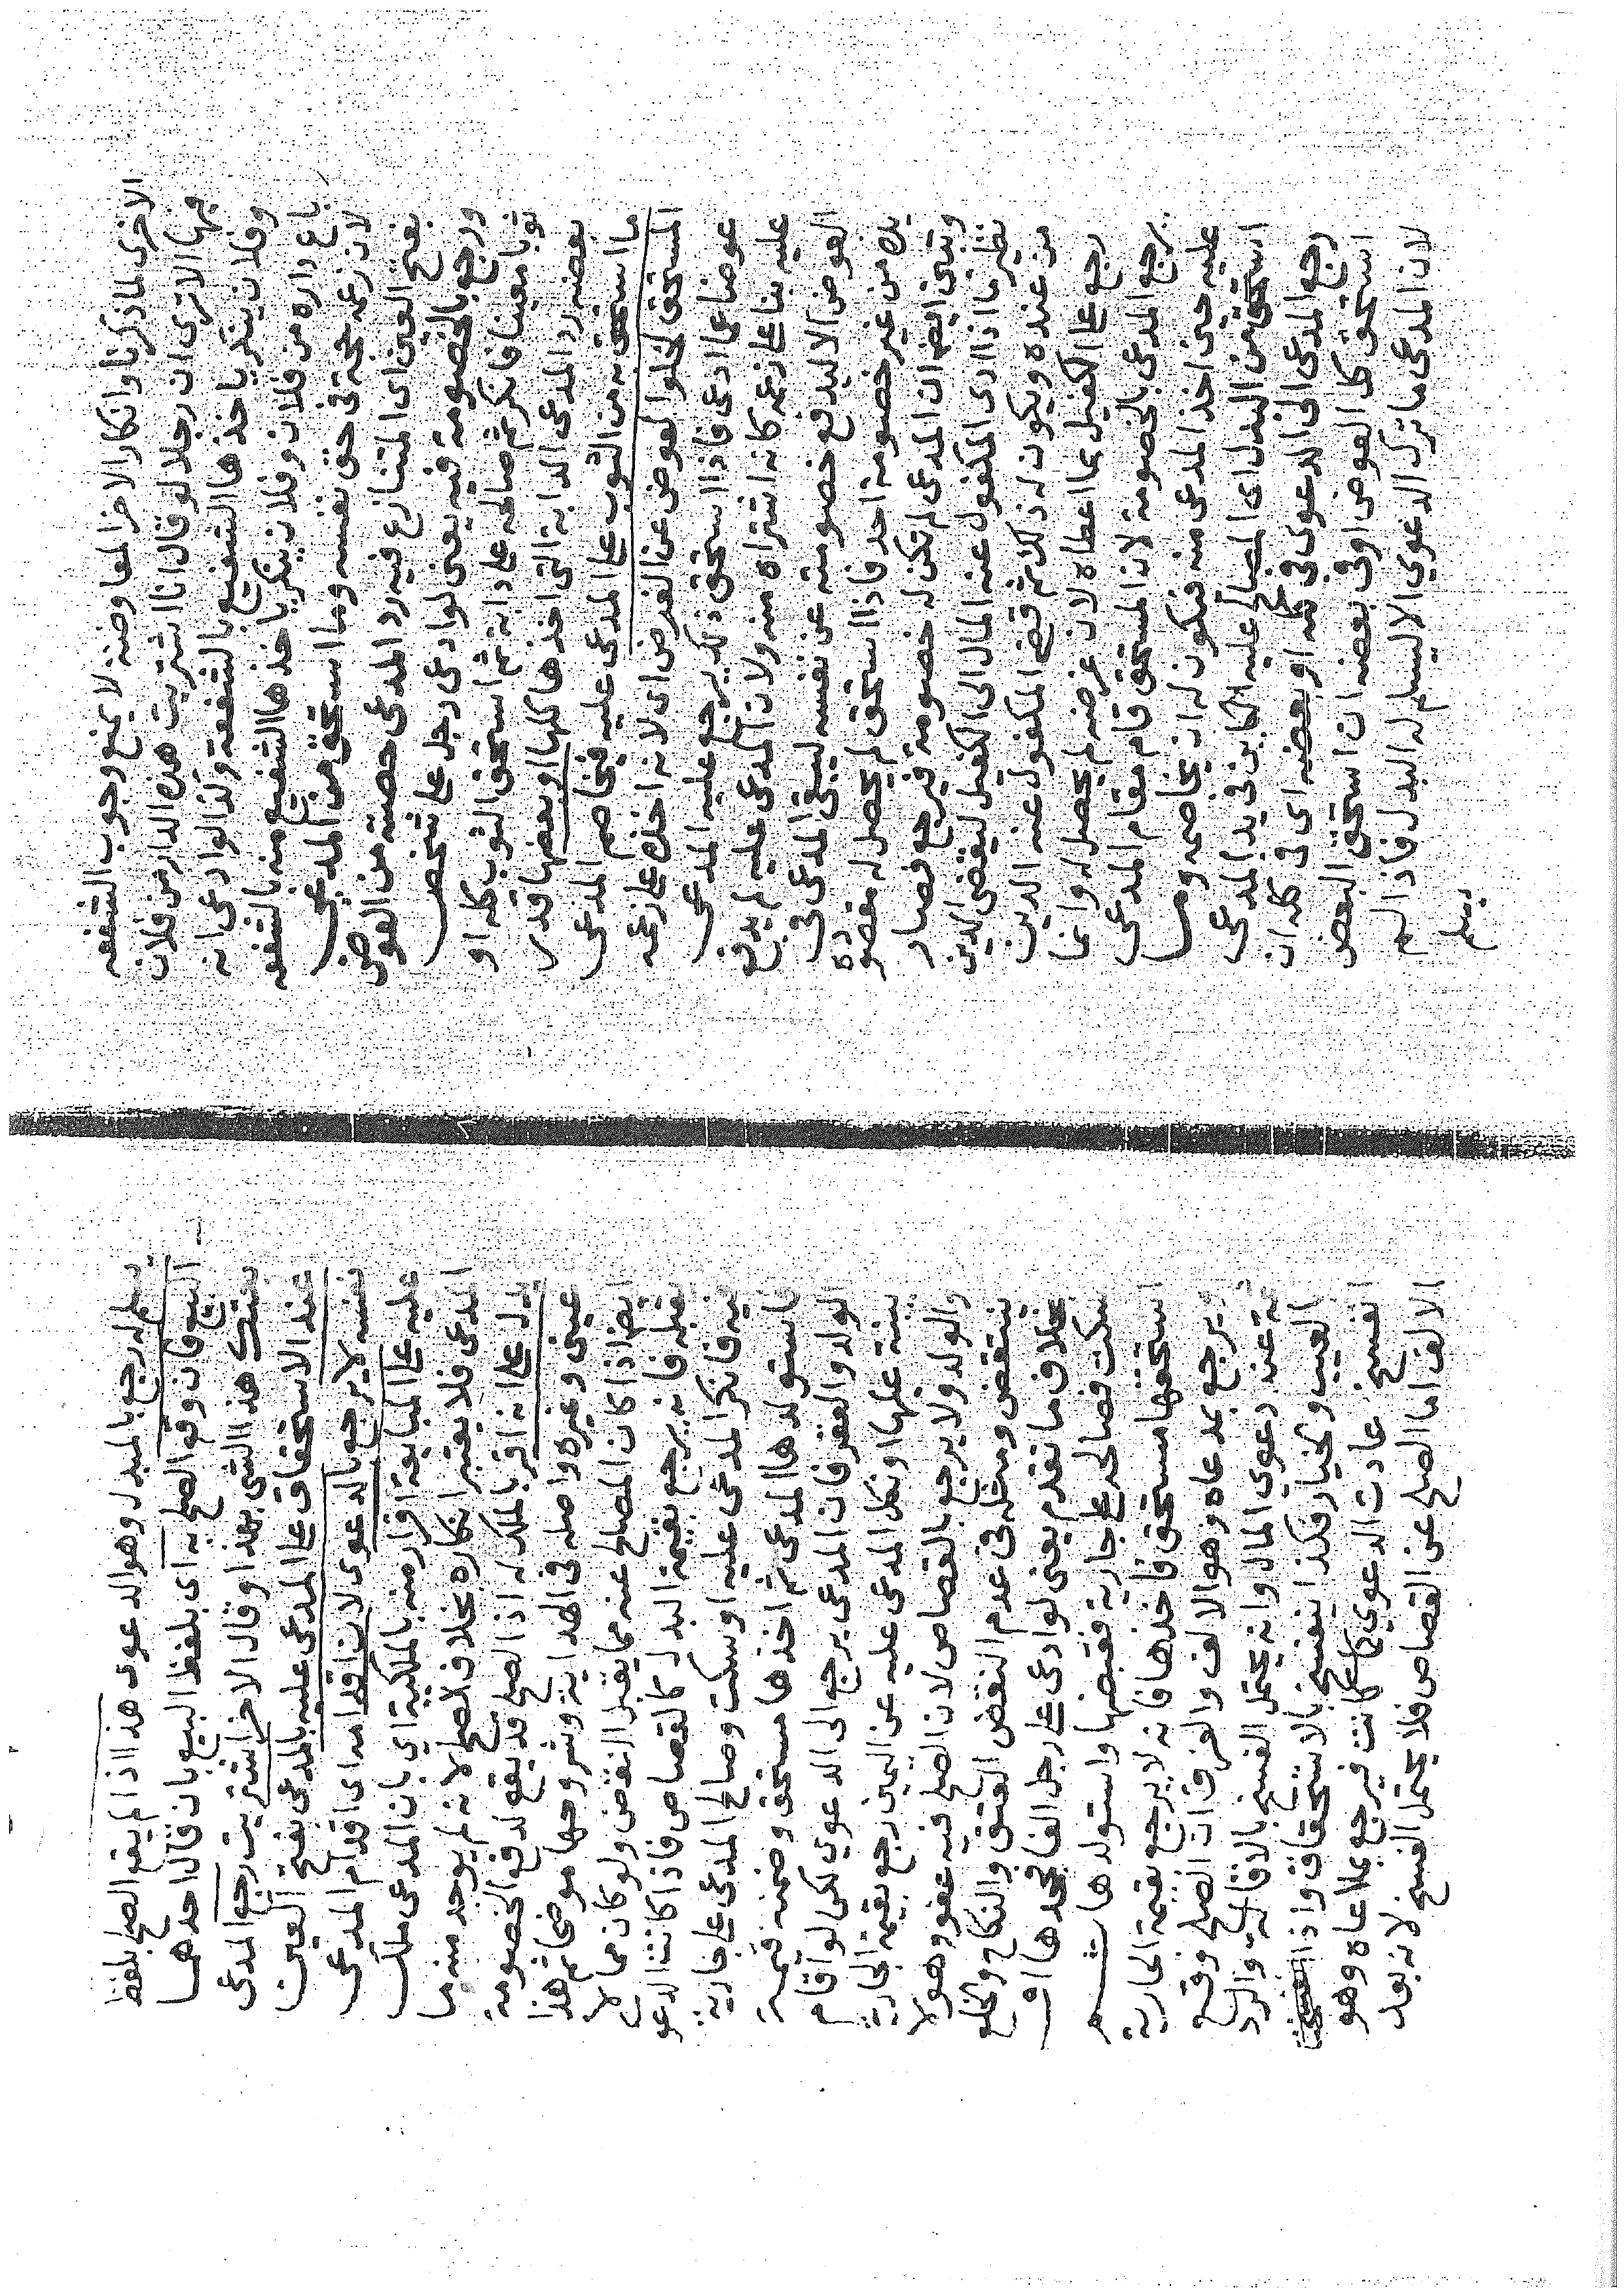 الاخرى لما ذكرنا وانكار الاخر المعاوضة لا يمنع وجوب الشفعه
فيها الاترى ان رجلا لو قال انا اشتريت هذه الدار من فلان
وفلان ينكر ياخذها الشفيع بالشفعة وكذا لو ادعى انه
باع داره من فلان وفلان ينكر ياخذها الشفيع منه بالشفعه
لان زعمه حجة في حق نفسه وما استحق من المدعي
بفتح العين اى المتنازع فيه رد المدعى حصته من العوض
ورجع بالخصومة فيه يعنى لو ادعى رجل على شخص
ثوبا معينا فانكر ثم صالحه على دابة ثم استحق الثوب كله او
بعضه رد المدعى الدابة التى اخذها كلها او بعضها قدر
ما استحق به من الثوب على المدعى عليه فيخاصم المدعى
المستحق لخلو العوض عن الغرض اى لانه اخذه على زعمه
عوضا عما ادعى فاذا استحق ذلك يرجع عليه المدعى
عليه بناء على زعمه كانه اشتراه منه ولان المدعى عليه لم يدفع
العوض الا ليدفع خصومته عن نفسه ليبقى المدعى فى
يده من غير خصومة احد فاذا استحق لم يحصل له مقصوده
وتبين ايضا ان المدعى لم تكن له خصومة فيرجع فصار
نظير ما اذا ادى المكفول عنه المال الى الكفيل ليقضى الدين
من عنده ويكون له ذلك ثم قضى المكفول عنه الدين
رجع على الكفيل بما اعطاه لان غرضه لم يحصل له وانما
يرجع المدعى بالخصومة لان المستحق قام مقام المدعى
عليه حين اخذ المدعى منه فيكون له ان يخاصمه وما
استحق من البدل اى المصالح عليه الكاين فى يد المدعى
رجع المدعى الى الدعوى فى كله او بعضه اى فى كله ان
استحق كل العوض او فى بعضه ان استحق البعض
لان المدعى ما ترك الدعوي الا ليسلم له البدل فاذا لم
يسلم
يسلم له رجع بالمبدل وهو الدعوى هذا اذا لم يقع الصلح بلفظ
البيع فان وقع الصلح به اى بلفظ البيع بان قال احدهما
بعتك هذا الشى بهذا وقال الاخر اشتريت رجع المدعى
عند الاستحقاق على المدعى عليه بالمدعى بفتح العين
نفسه لا يرجع بالدعوى لان اقدامه اى اقدام المدعى
عليه على المبايعة اقرار منه بالملكية اي بان المدعى ملك
المدعى فلا يعتبر انكاره بخلاف الصلح لانه لم يوجد منه ما
يدل على انه اقر بالملك له اذ الصلح قد يقع لدفع الخصومة
عينى وغيره واصله فى الهداية وشروحها موضحا ثم هذا
ايضا اذا كان المصالح عنه مما يقبل النقض ولو كان مما لا
يقبله فانه يرجع بقيمة البدل كالقصاص فاذا كانت الدعوى
فيه فانكر المدعى عليه او سكت وصالح المدعى على جارية
فاستولدها المدعى ثم اخذها مستحق وضمنه قيمة
الولد والعقر فان المدعى يرجع الى الدعوي لكن لو اقام
بينة عليها او نكل المدعى عليه عن اليمين رجع بقيمة الجارية
والولد ولا يرجع بالقصاص لان الصلح فيه عفو وهو لا
ينتقض ومثله فى عدم النقض العتق والنكاح والخلع
بخلاف ما تقدم يعنى لو ادعى على رجل الفا فجحدها او
سكت فصالحه على جارية فقبضها واستولدها ثم
استحقها مستحق فاخذها فانه لا يرجع بقيمة الجارية
بل يرجع بمدعاه وهو الالف والفرق ان الصلح وقع
ثمة عند دعوى المال وانه يحتمل الفسخ بالاقالة والرد
العيب والخيار فكذا ينفسخ بالاستحقاق واذا
انفسخ عادت الدعوي كما كانت فيرجع بمدعاه وهو
الالف اما الصلح عن القصاص فلا يحتمل الفسخ لانه بعد